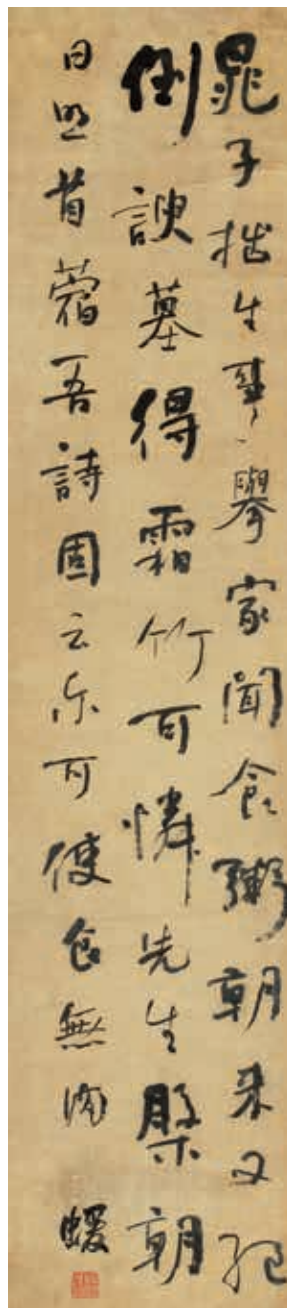 晁子拙生事舉家聞食粥朝来又絕
倒諛墓得霜竹可憐先生槃朝
日照苜蓿吾詩固云尓可使食無肉 蝯